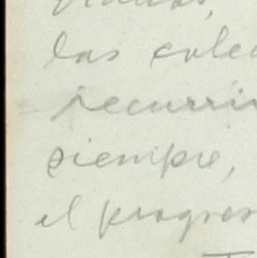 las colec
recurri
siempre,
el progres